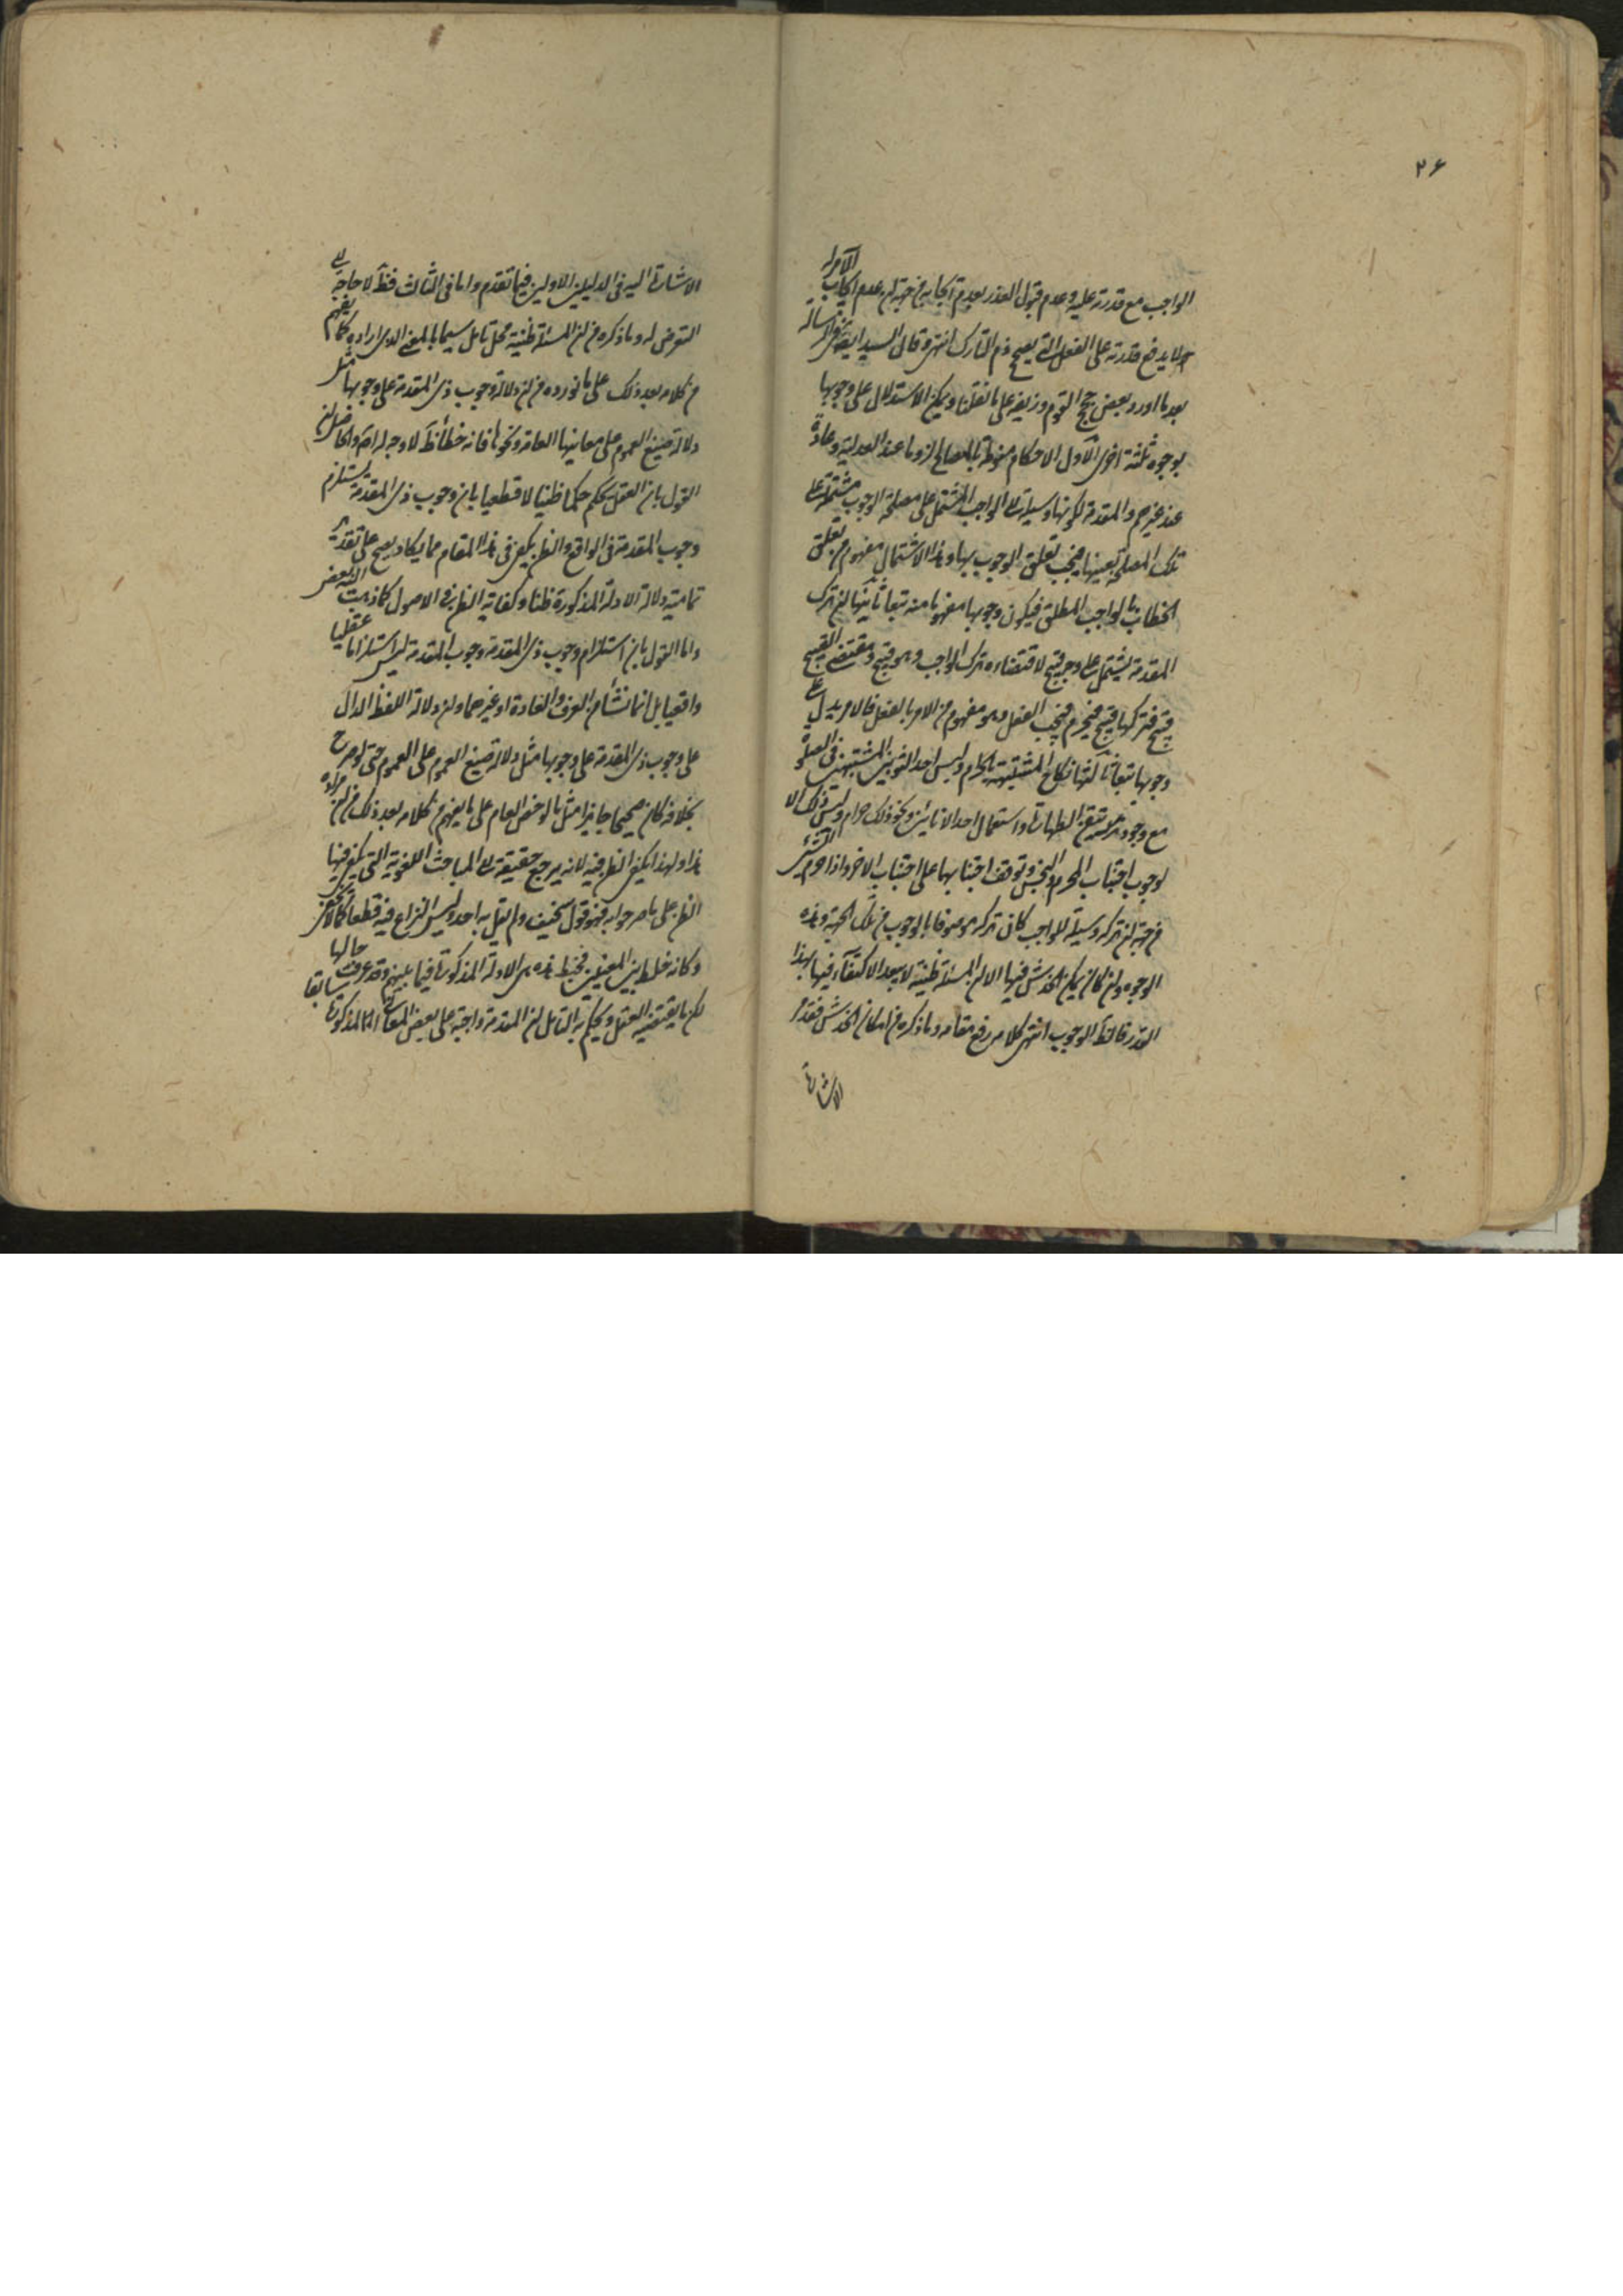 ۲۶
الواجب مع قدرته عليه وعدم قبول العذر بعدم ايجابه من جهة ان عدم ايجاب الآمر له
لا يدفع قدرته على الفعل التي يصح ذم التارك انتهى وقال السيد ايضا في رسالة
بعد ما اورد بعض حجج القوم وزيفه على ما نقلنا ويمكن الاستدلال على وجوبها
بوجوه ثلثة اخرى الاول الاحكام منوطة بالمصالح لزوما عند العدلية وعادة
عند غيرهم والمقدمة لكونها وسيلة الى الواجب المشتمل على مصلحة الوجوب مشتملة على
تلك المصلحة بعينها فيجب تعلق الوجوب بها وهذا الاشتمال مفهوم من تعلق
الخطاب بالواجب المطلق فيكون وجوبها مفهوما منه تبعا ثانيها ان ترك
المقدمة يشتمل على وجه قبح لاقتضاءه ترك الواجب وهو قبيح ومقتضى القبيح
قبيح فتركها قبيح فيحرم فيجب الفعل وهو مفهوم من الامر بالفعل فالامر يدل على
وجوبها تبعا ثالثها نكاح المشتبهة بالحرام ولبس احد الثوبين المشتبهين في الصلوة
مع وجود متيقن الطهارة واستعمال احد الانائين ونحو ذلك حرام وليس ذلك الا
لوجوب اجتناب المحرم والنجس وتوقف اجتنابها على اجتناب الاخر واذا حرم الشئ
من جهة ان تركه وسيلة للواجب كان تركه موصوفا بالوجوب من تلك الجهة وهذه
الوجوه وان كان يمكن الخدش فيها الا ان المسئلة ظنية لا يبعد الاكتفاء فيها بهذا
القدر فالظ الوجوب انتهى كلامه رفع مقامه وما ذكره من امكان الخدش فقد مر
الاشارة
الاشارة اليه في الدليلين الاولين فيما تقدم واما في الثالث فظ لا حاجة الى
التعرض له وما ذكره من ان المسئلة ظنية محل تامل سيما بالمعنى الذي اراده كما يفهم
من كلامه بعد ذلك على ما نورده من ان دلالة وجوب ذي المقدمة على وجوبها مثل
دلالة صيغ العموم على معانيها العامة ونحوها فانه خطأ ظ لا وجه له اصلا والحاصل ان
القول بان العقل يحكم حكما ظنيا لا قطعيا بان وجوب ذي المقدمة يستلزم
وجوب المقدمة في الواقع والظن يكفي في هذا المقام مما يكاد يصح على تقدير
تمامية دلالة الادلة المذكورة ظنا وكفاية الظن في الاصول كما ذهب اليه بعض
واما القول بان استلزام وجوب ذي المقدمة وجوب المقدمة ليس استلزاما عقليا
واقعيا بل انما نشأ من العرف والعادة او غيرهما وان دلالة اللفظ الدال
على وجوب ذي المقدمة على وجوبها مثل دلالة صيغ العموم على العموم حتى لو صرح
بخلافه كان صحيحا جايزا مثل ما لو خص العام على ما يفهم من كلامه بعد ذلك من ان مراده
هذا ولهذا يكفي الظن فيه لانه يرجع حقيقة الى المباحث اللغوية التي يكفي فيها
الظن على ما صرحوا به فهو قول سخيف ولم يقل به احد وليس النزاع فيه قطعا كما لا يخفى
وكانه خلط بين المعنيين فخبط هذه هي الادلة المذكورة فيما بينهم وقد عرفت حالها سابقا
لكن ما يقتضيه العقل ويحكم به التامل ان المقدمة واجبة على بعض المعاني المذكورة